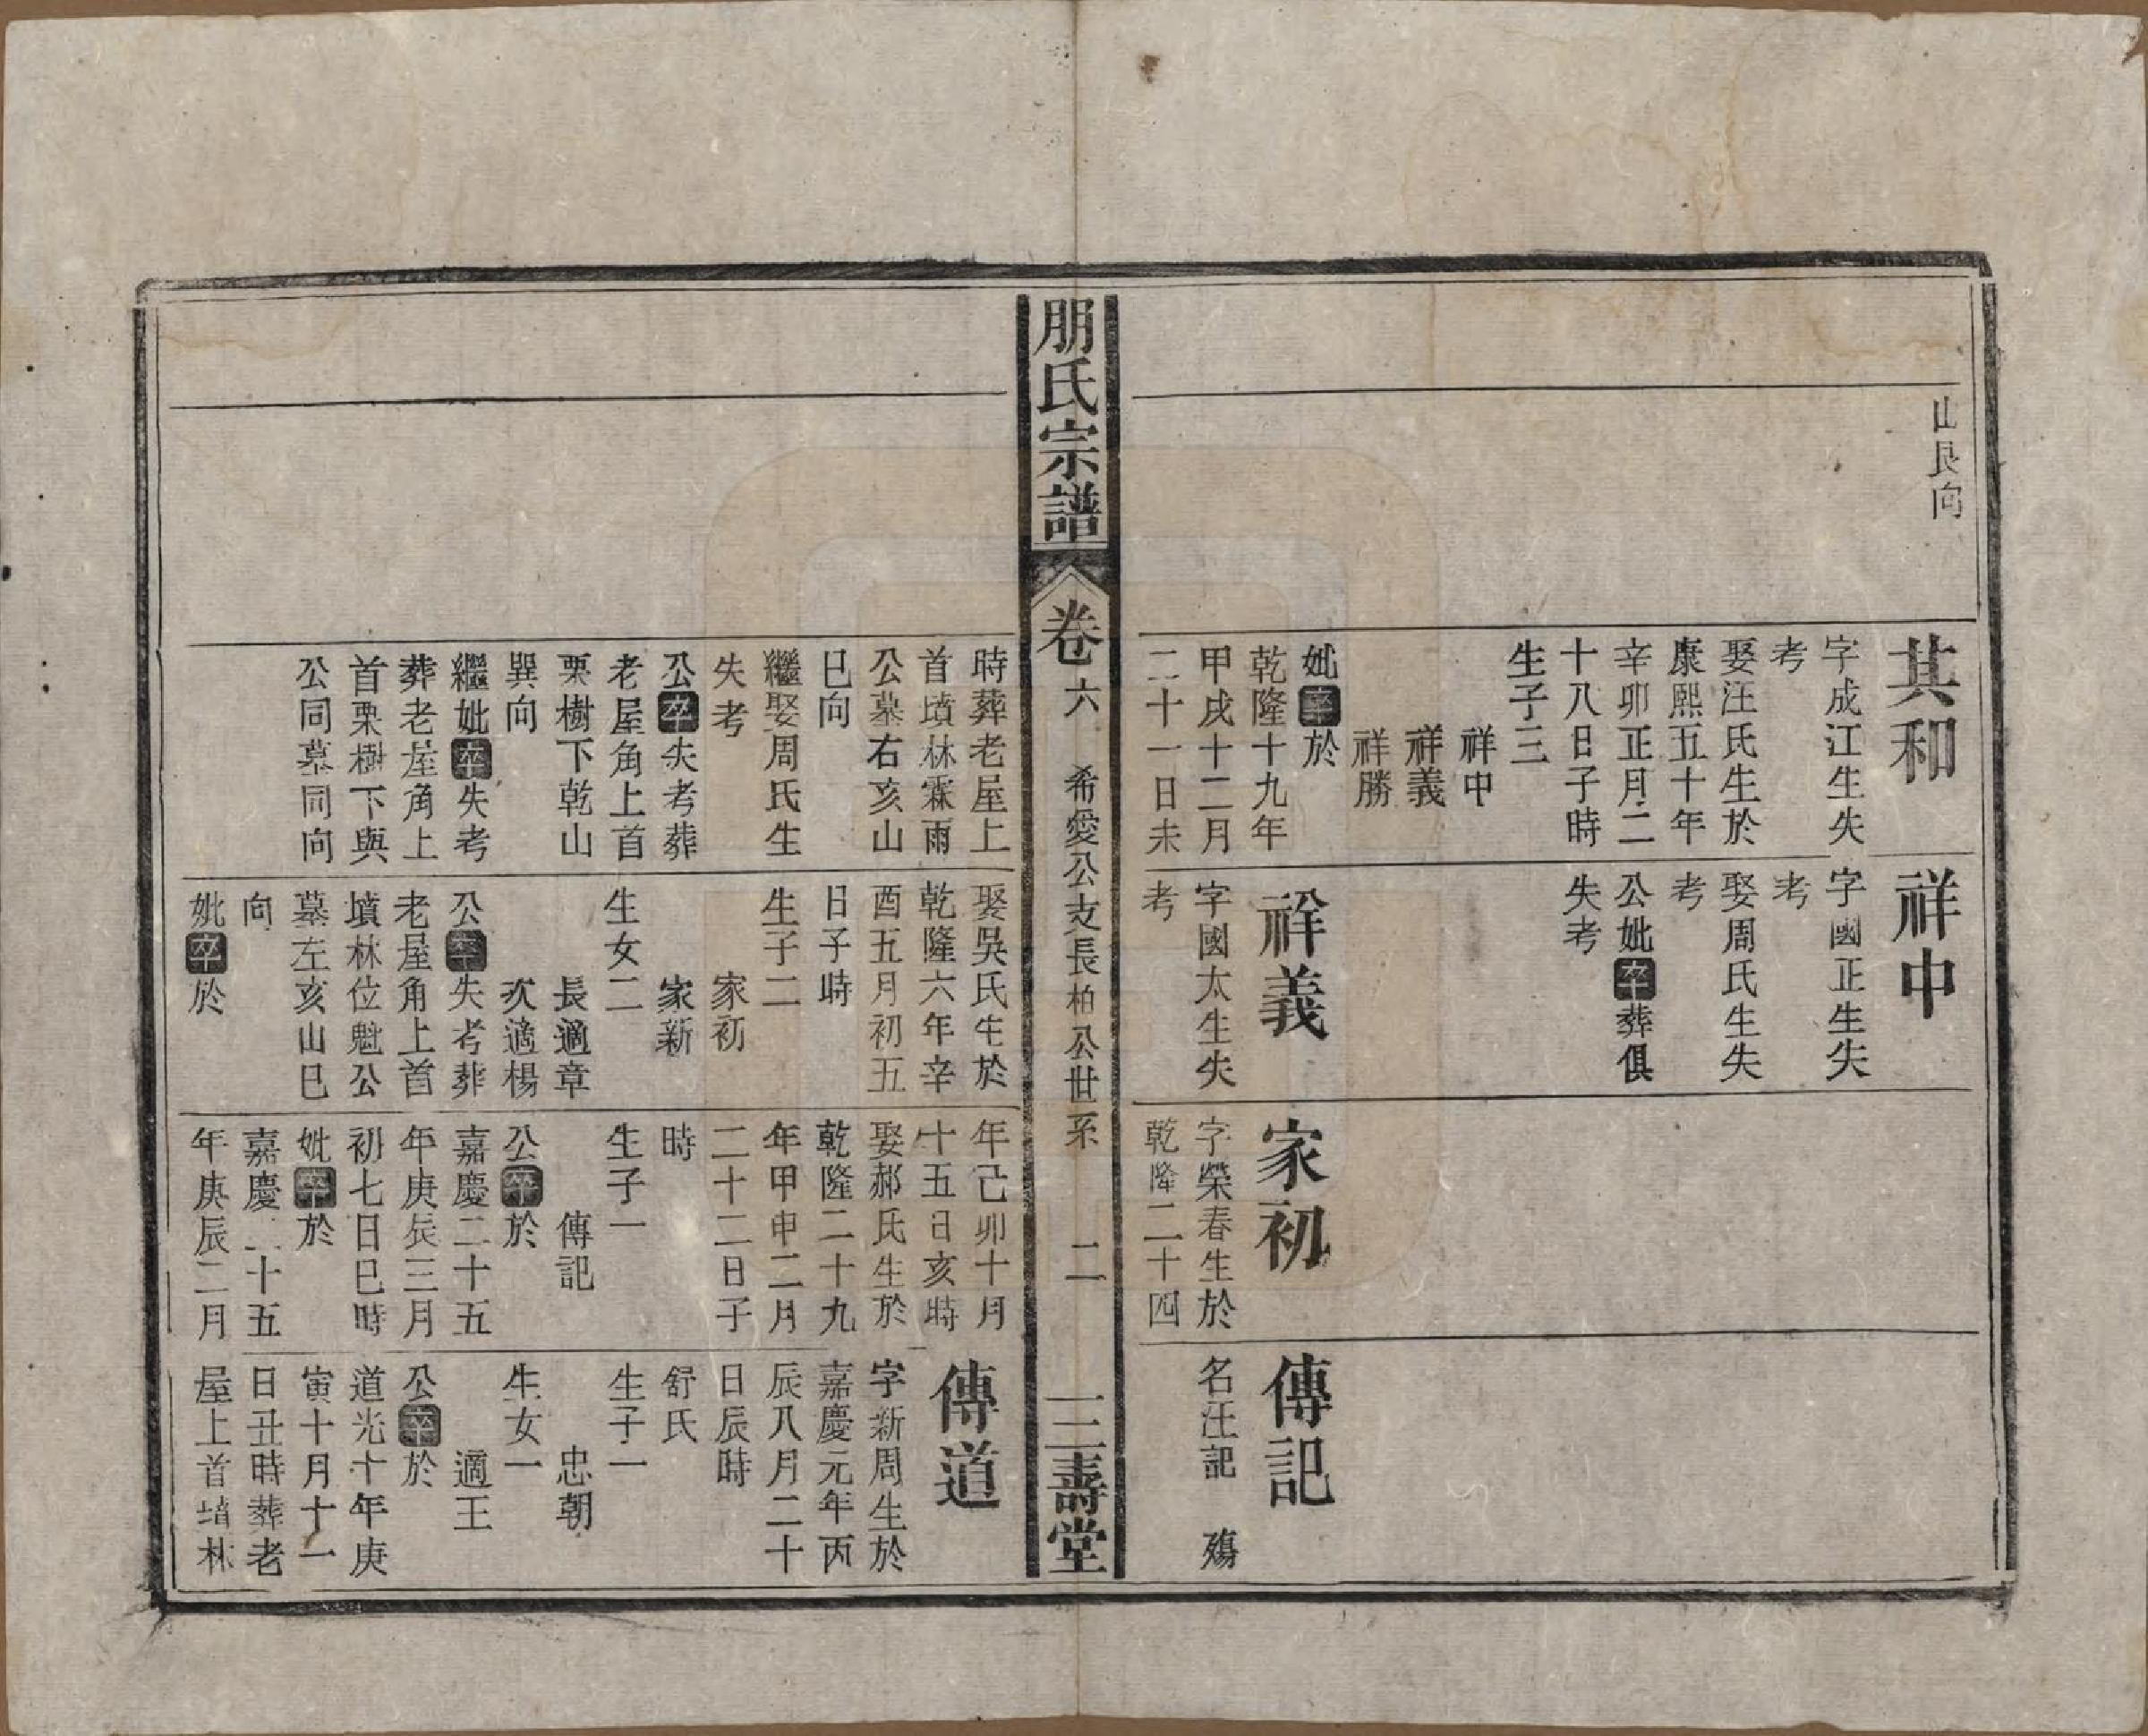 山艮向
共和
字成江生失
考
娶汪氏生於
康熙五十年
辛卯正月二
十八日子時
生子三
祥中
祥義
祥勝
妣卒於
乾隆十九年
甲戌十二月
二十一日未
祥中
字國正生失
考
娶周氏生失
考
公妣卒葬俱
失考
祥義
字國太生失
考
家初
字榮春生於
乾隆二十四
傳記
名汪記 殤
朋氏宗譜
卷六
希愛公支長柏公世系
二
三壽堂
時葬老屋上
首墳林霖雨
公墓右亥山
巳向
繼娶周氏生
失考
公卒失考葬
老屋角上首
栗樹下乾山
巽向
繼妣卒失考
葬老屋角上
首栗樹下與
公同墓同向
娶吳氏生於
乾隆六年辛
酉五月初五
日子時
生子二
家初
家新
生女二
長適章
次適楊
公卒失考葬
老屋角上首
墳林位魁公
墓左亥山巳
向
妣卒於
年己卯十月
十五日亥時
娶郝氏生於
乾隆二十九
年甲申二月
二十二日子
時
生子一
傳記
公卒於
嘉慶二十五
年庚辰三月
初七日巳時
妣卒於
嘉慶二十五
年庚辰二月
傳道
字新周生於
嘉慶元年丙
辰八月二十
日辰時
舒氏
生子一
忠朝
生女一
適王
公卒於
道光十年庚
寅十月十一
日丑時葬老
屋上首墳林